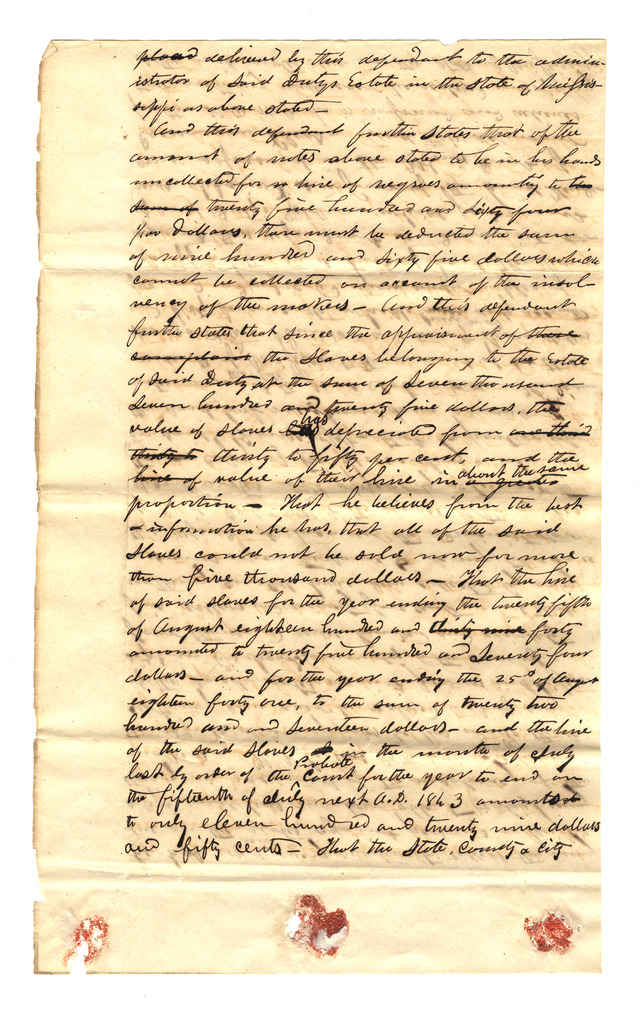 placed delivered by this defendant to the admin-
istrator of Said Dutys Estate in the State of Missis-
sippi as above stated-
And this defendant further States that of the
amount of notes above stated to be in his hands
uncollected for hire of negroes amounting to the
sum of twenty five hundred and sixty four
dollars, there must be deducted the sum
of nine hundred and sixty five dollars which
cannot be collected on account of the insol-
vency of the makers- And this defendant
further states that since the appraisment of these
complain the slaves belonging to the Estate
of Said Duty at the sum of Seven thousand
Seven hundred and twenty five dollars, the
value of slaves has depreciated from one third
thirty to thirty to fifty per cent, and the
hire of value of their hire in about the same a greater
proportion- That he believes from the best
information he has, that all of the said
Slaves could not be sold now for more
than five thousand dollars- That the hire
of said slaves for the year ending the twenty fifth
of August eighteen hundred and thirty nine forty
amounted to twenty five hundred and Seventy four
dollars- and for the year ending the 25th of Augst
eighteen forty one, to the sum of twenty two
hundred and and Seventeen dollars- and the hire
of the said Slaves in the month of July
last by order of the Probate Court for the year to end on
the fifteenth of July next A.D. 1843 amounted
to only eleven hundred and twenty nine dollars
and fifty cents- That the State, County & City